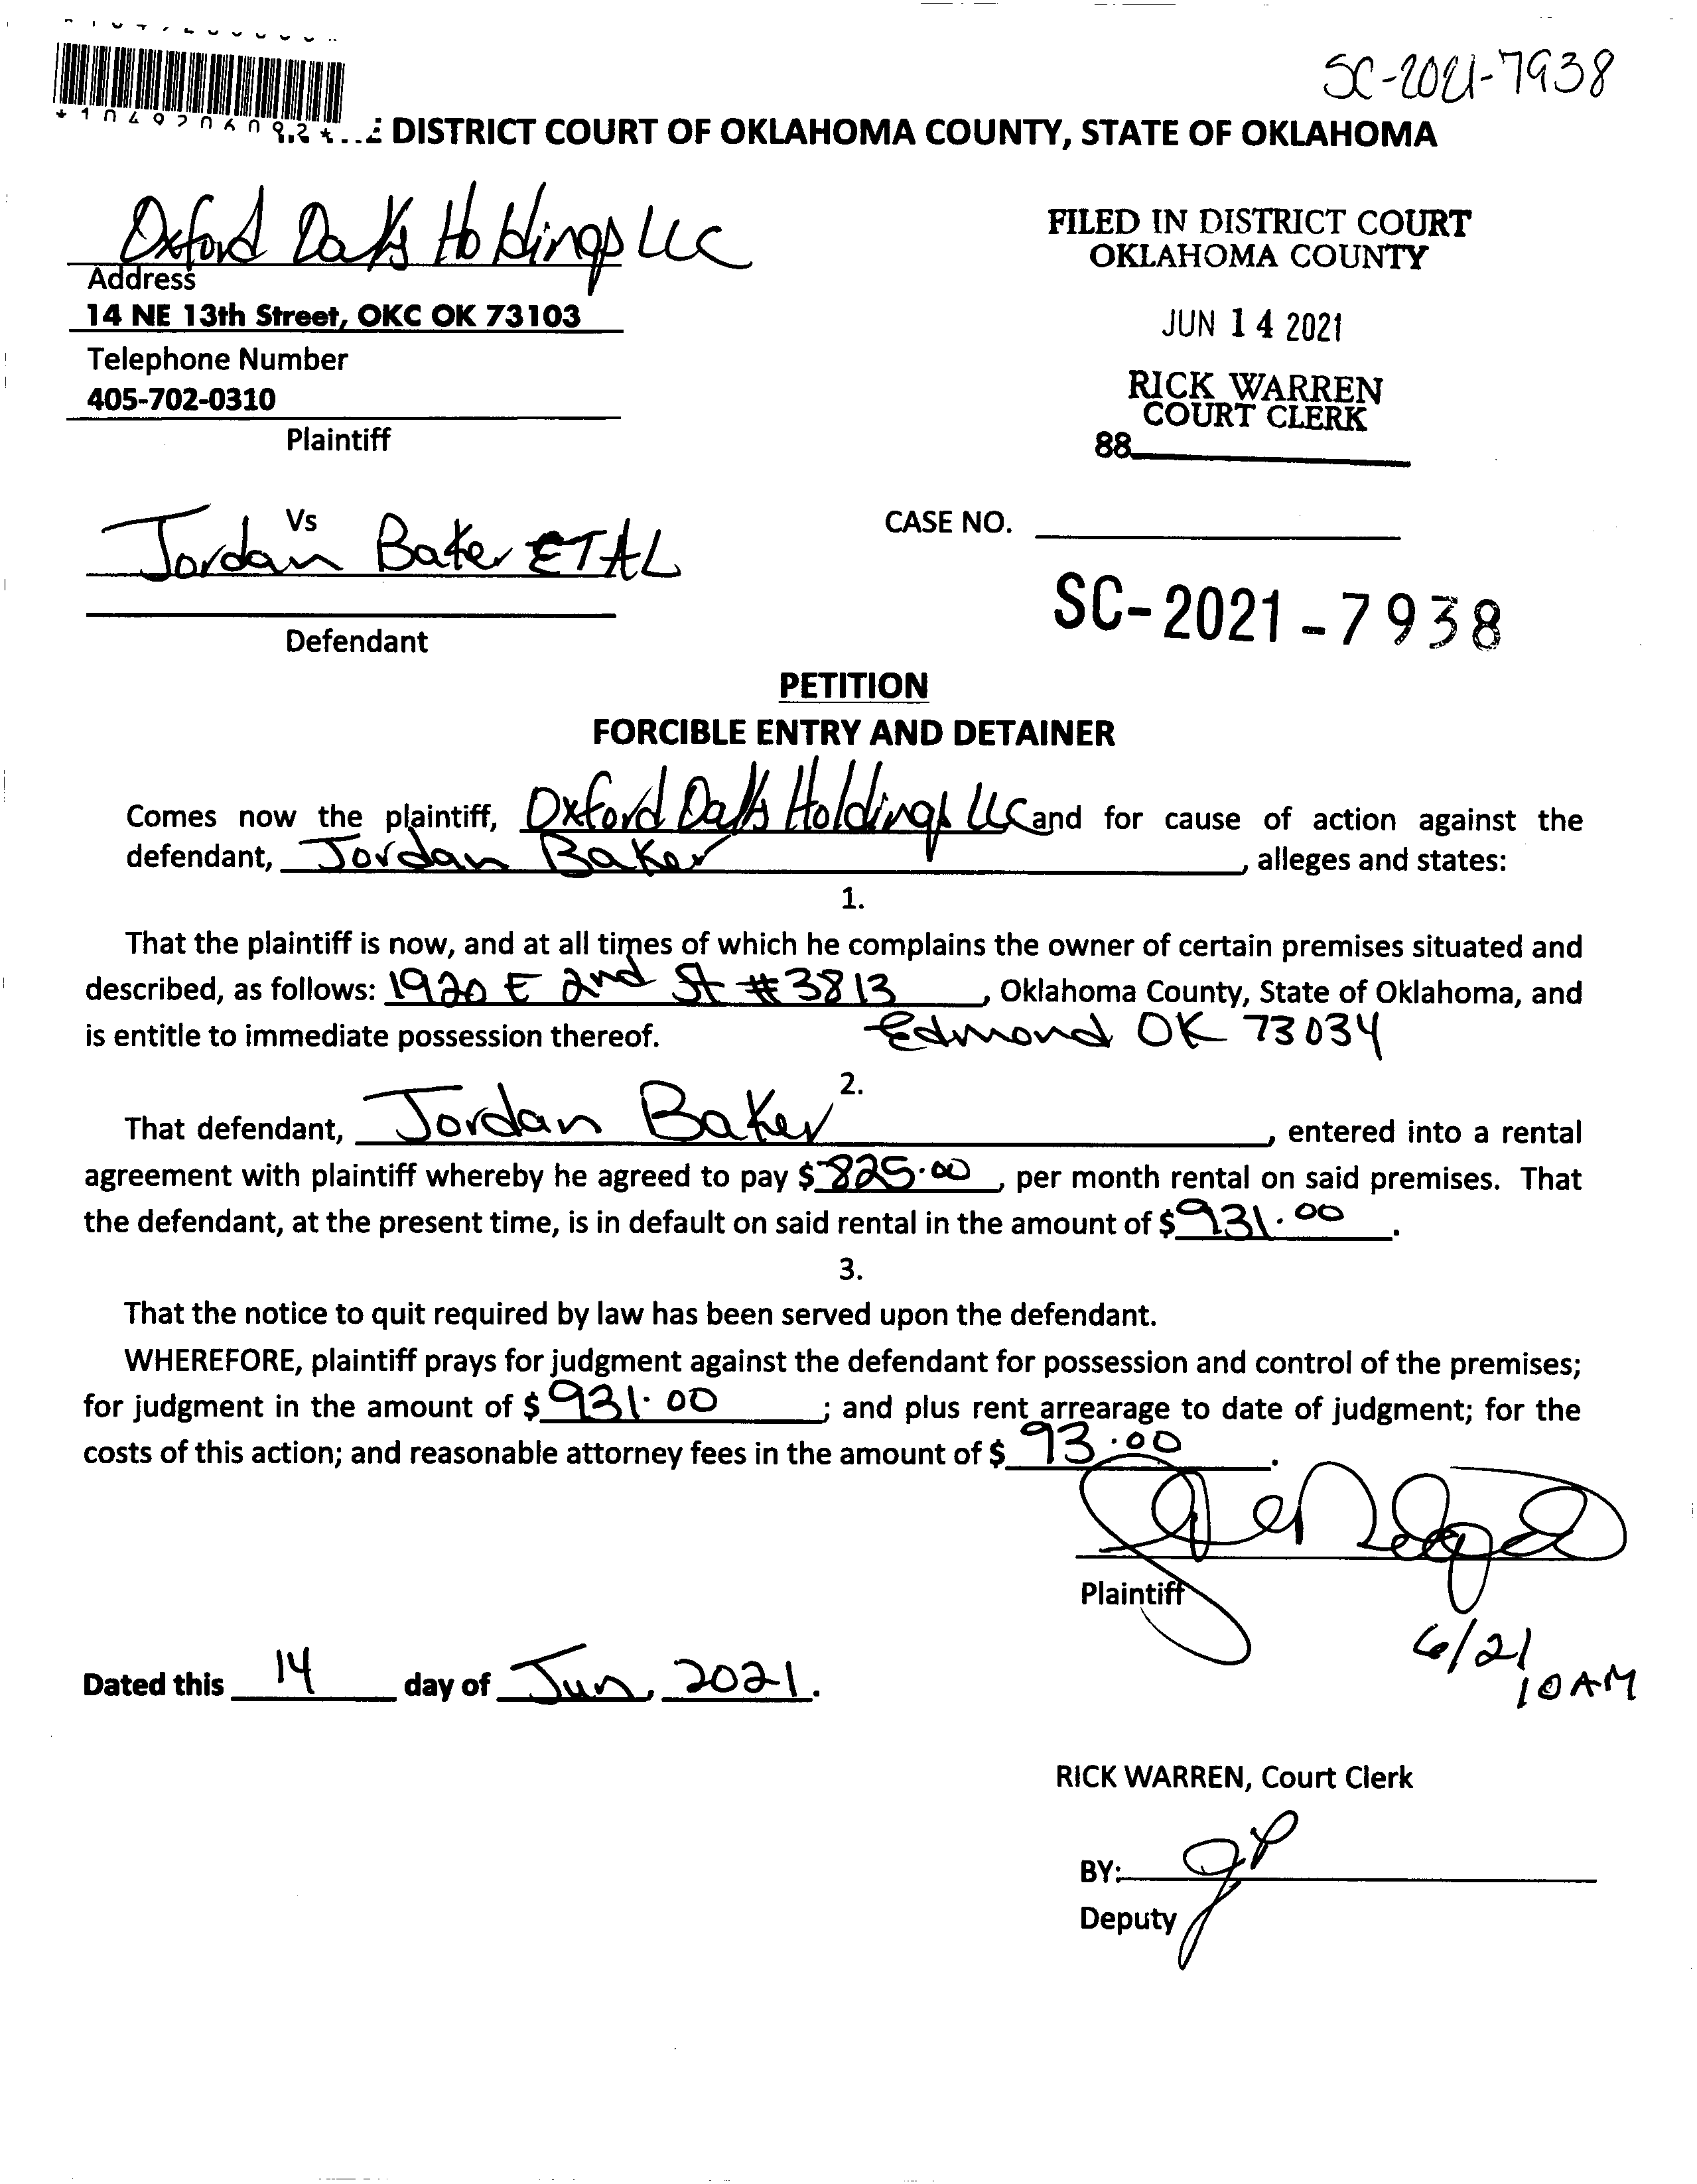 SC-2021-7938
DISTRICT COURT OF OKLAHOMA COUNTY, STATE OF OKLAHOMA
Oxford Oaks Holdings LLC
Address
14 NE 13th Street, OKC OK 73103
Telephone Number
405-702-0310
Plaintiff
FILED IN DISTRICT COURT
OKLAHOMA COUNTY
JUN 14 2021
RICK WARREN
COURT CLERK
88
Vs
Jordan Baker ETAL
Defendant
CASE NO.
SC-2021-7938
PETITION
FORCIBLE ENTRY AND DETAINER
Comes now the plaintiff, Oxford Oaks Holdings LLC and for cause of action against the
defendant, Jordan Baker, alleges and states:
1.
That the plaintiff is now, and at all times of which he complains the owner of certain premises situated and
described, as follows: 1920 E 2nd St #3813, Oklahoma County, State of Oklahoma, and
is entitle to immediate possession thereof. Edmond OK 73034
2.
That defendant, Jordan Baker, entered into a rental
agreement with plaintiff whereby he agreed to pay $825.00, per month rental on said premises. That
the defendant, at the present time, is in default on said rental in the amount of $931.00.
3.
That the notice to quit required by law has been served upon the defendant.
WHEREFORE, plaintiff prays for judgment against the defendant for possession and control of the premises;
for judgment in the amount of $931.00; and plus rent arrearage to date of judgment; for the
costs of this action; and reasonable attorney fees in the amount of $93.00.
Plaintiff
6/21
10AM
Dated this 14 day of Jun, 2021.
RICK WARREN, Court Clerk
BY: JP
Deputy